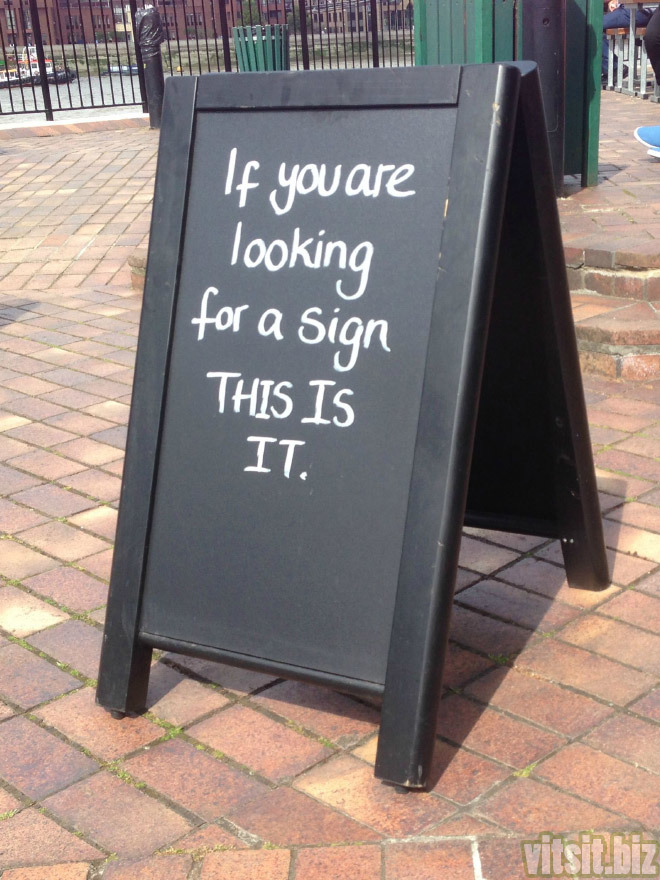 If you are
looking
for a sign
THIS IS
IT.
vitsit.biz